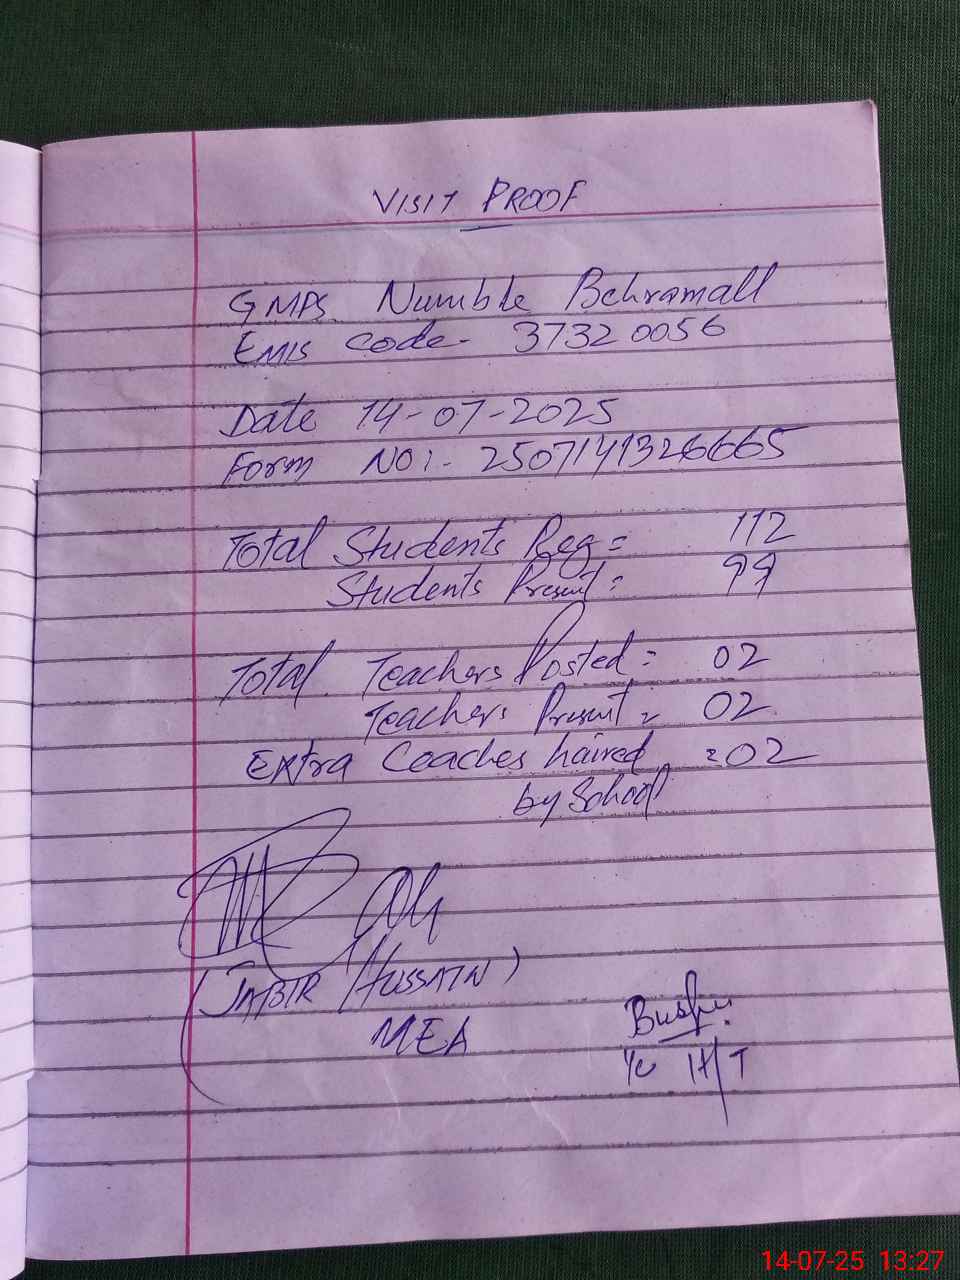 VISIT PROOF
GMPS Numble Behramall
EMIS Code- 37320056
Date 14-07-2025
Form NO:- 2507141326665
Total Students Reg = 112
Students Present = 99
Total Teachers Posted = 02
Teachers Present = 02
Extra Coaches haired = 02
by School
(JABIR HUSSAIN)
MEA
I/C H/T
14-07-25 13:27